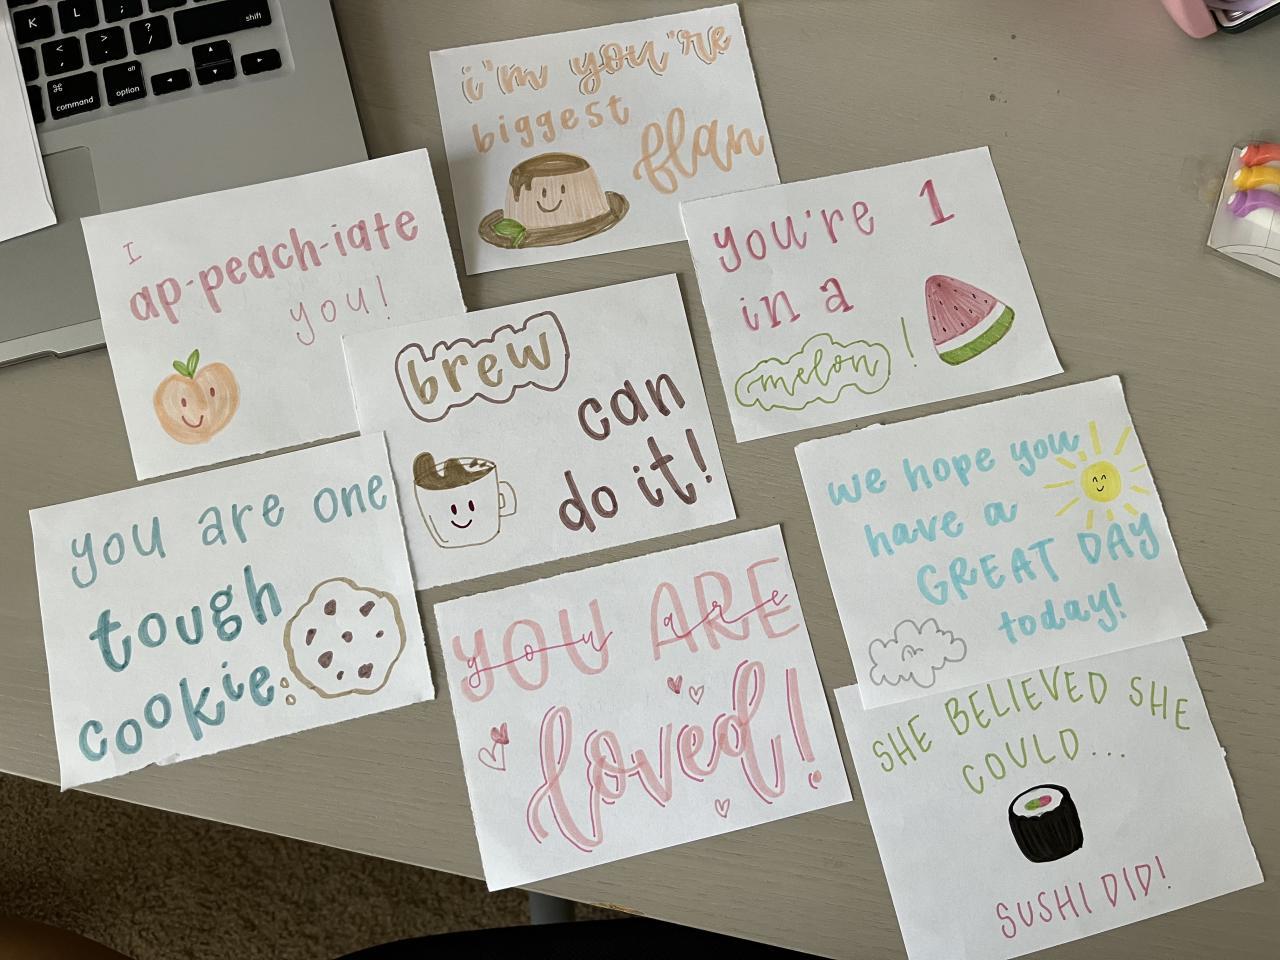 K L ;
shift
< , > . ? /
⌘ command
alt option
i'm you're
biggest
flan
I
ap-peach-iate
you!
you're 1
in a
melon!
brew
can
do it!
we hope you
have a
GREAT DAY
today!
you are one
tough
cookie
YOU ARE
you are
loved!
SHE BELIEVED SHE
COULD...
SUSHI DID!